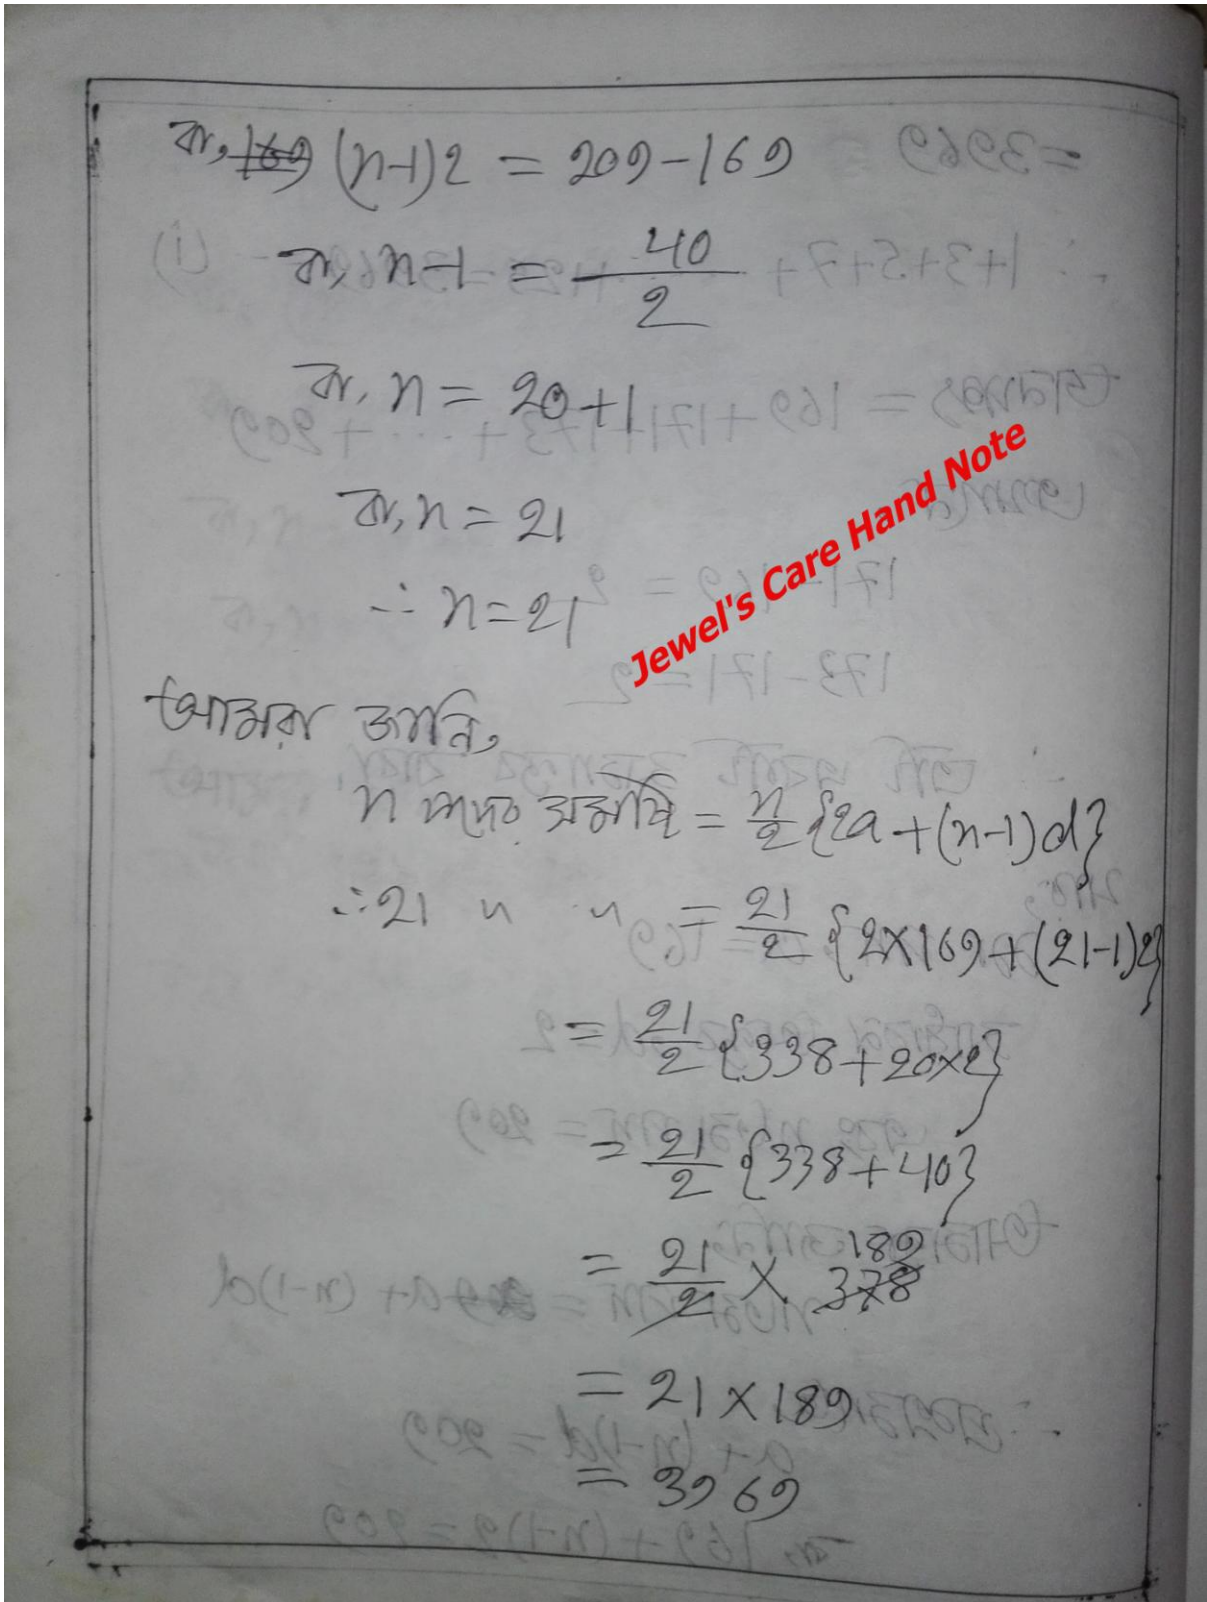 বা, 169 (n-1)2 = 209-169
বা, n-1 = 40/2
বা, n = 20+1
বা, n = 21
∴ n = 21
Jewel's Care Hand Note
আমরা জানি,
n পদের সমষ্টি = n/2 {2a + (n-1)d}
∴ 21 " " = 21/2 {2×169+(21-1)2}
= 21/2 {338+20×2}
= 21/2 {338+40}
= 21/2 × 378 189
= 21×189
= 3969